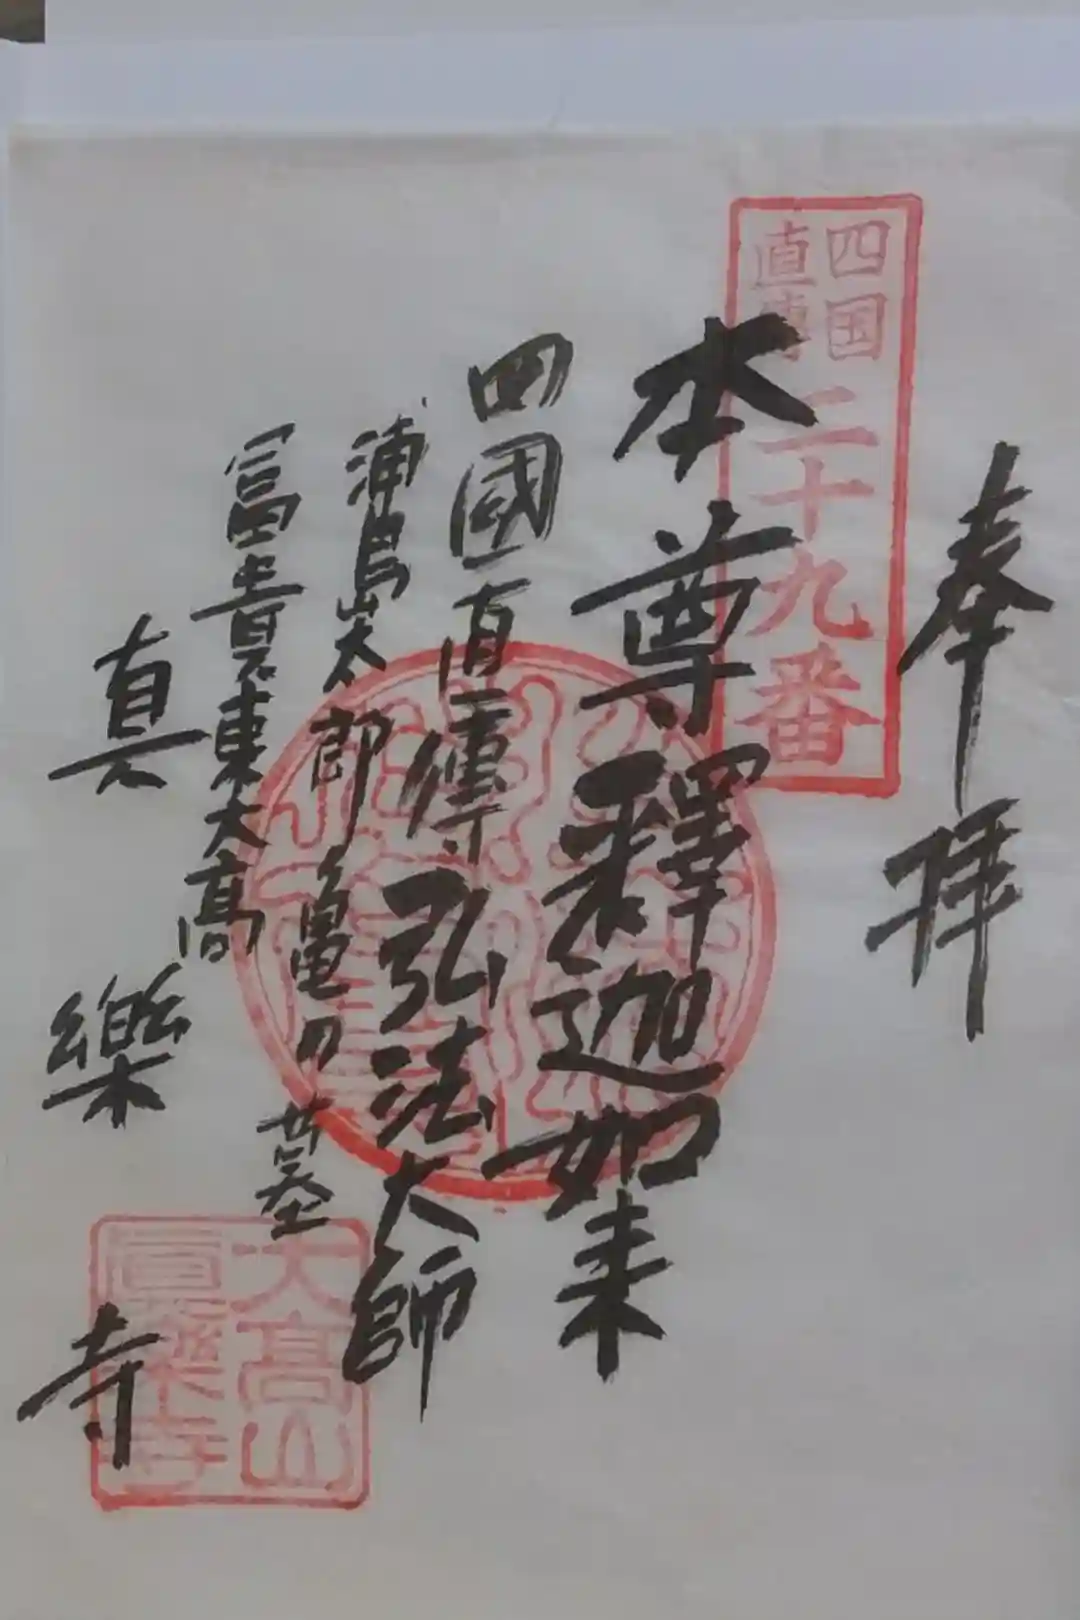 奉拝
四国
直傳
二十九番
本尊釋迦如来
四國直傳弘法大師
浦島太郎亀の墓
冨貴東大高
真樂寺
大高山
眞樂寺